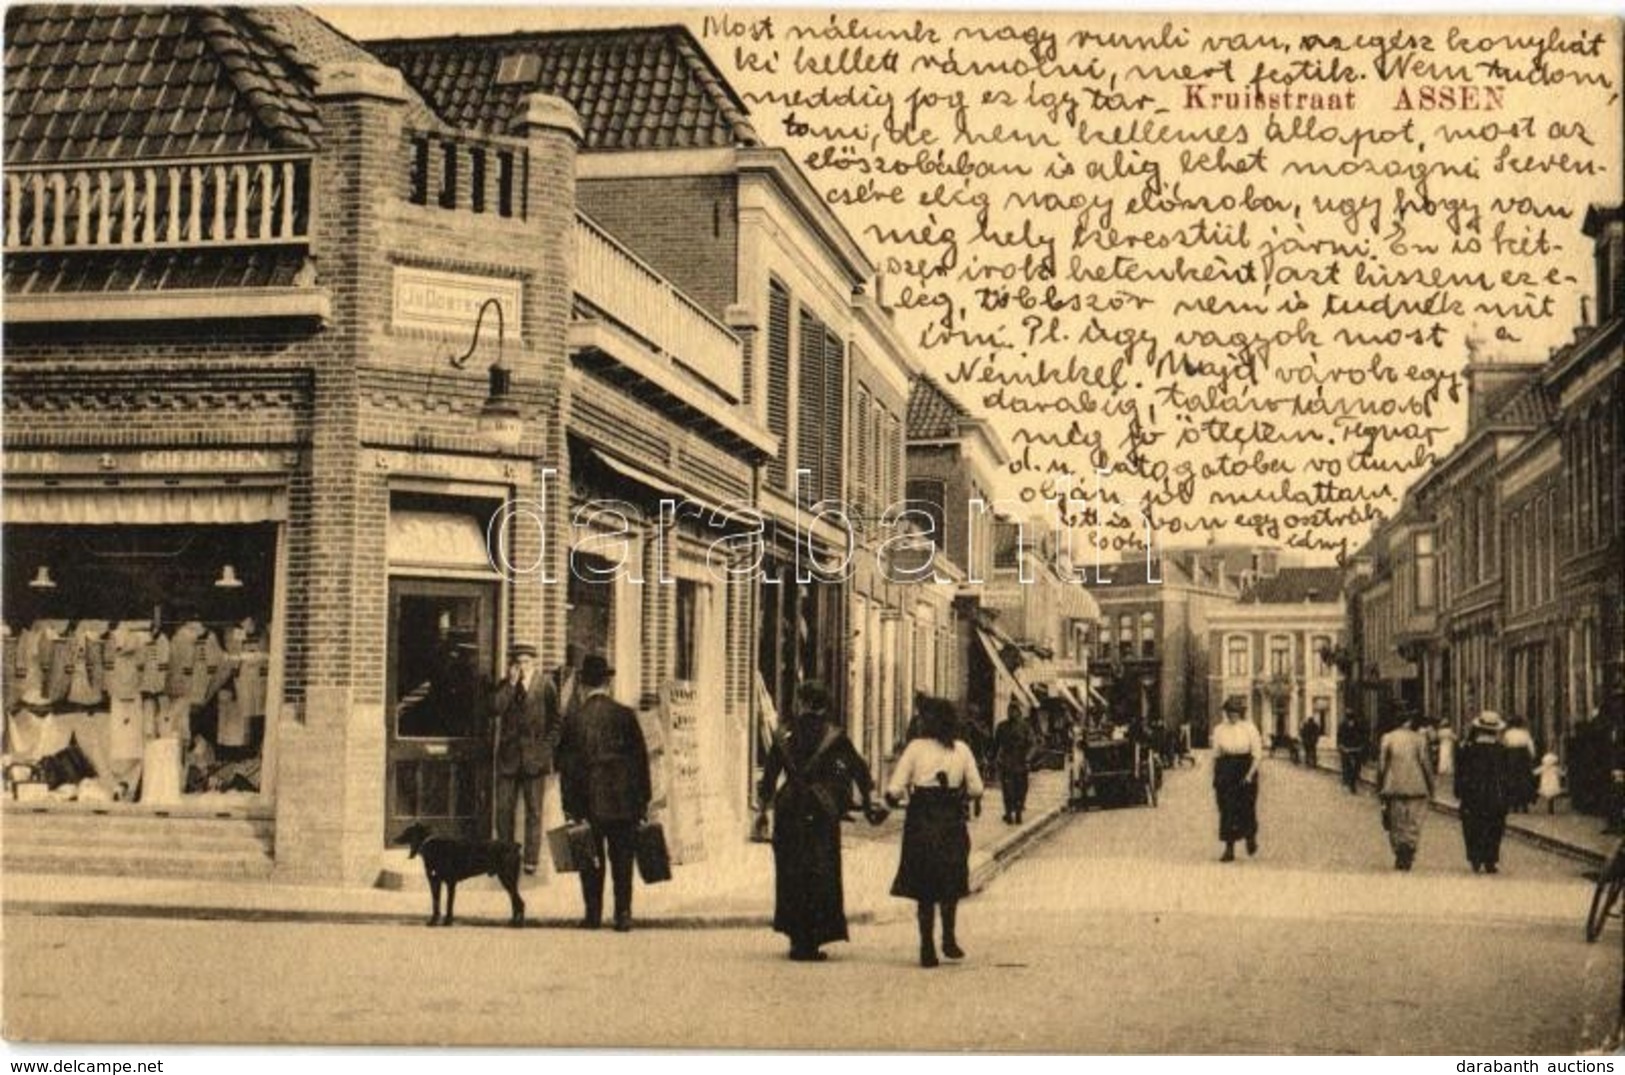 Most nálunk nagy rumli van, az egész konyhát
ki kellett rámolni, mert festik. Nem tudom,
meddig fog ez így tar-
Kruisstraat ASSEN
tani, de nem kellemes állapot, most az
előszobában is alig lehet mozogni. Szeren-
csére elég nagy előszoba, úgy hogy van
még hely keresztül járni. Én is két-
szer irok hetenként, azt hiszem ez e-
lég, többször nem is tudnék mit
írni. Pl. úgy vagyok most a
Nénikkel. Majd várok egy
darabig, talán támad
még jó ötletem. Tegnap
d. u. látogatóba voltunk
jól mulattam.
is van egy osztrák
GOEDEREN
darabanth
darabanth auctions